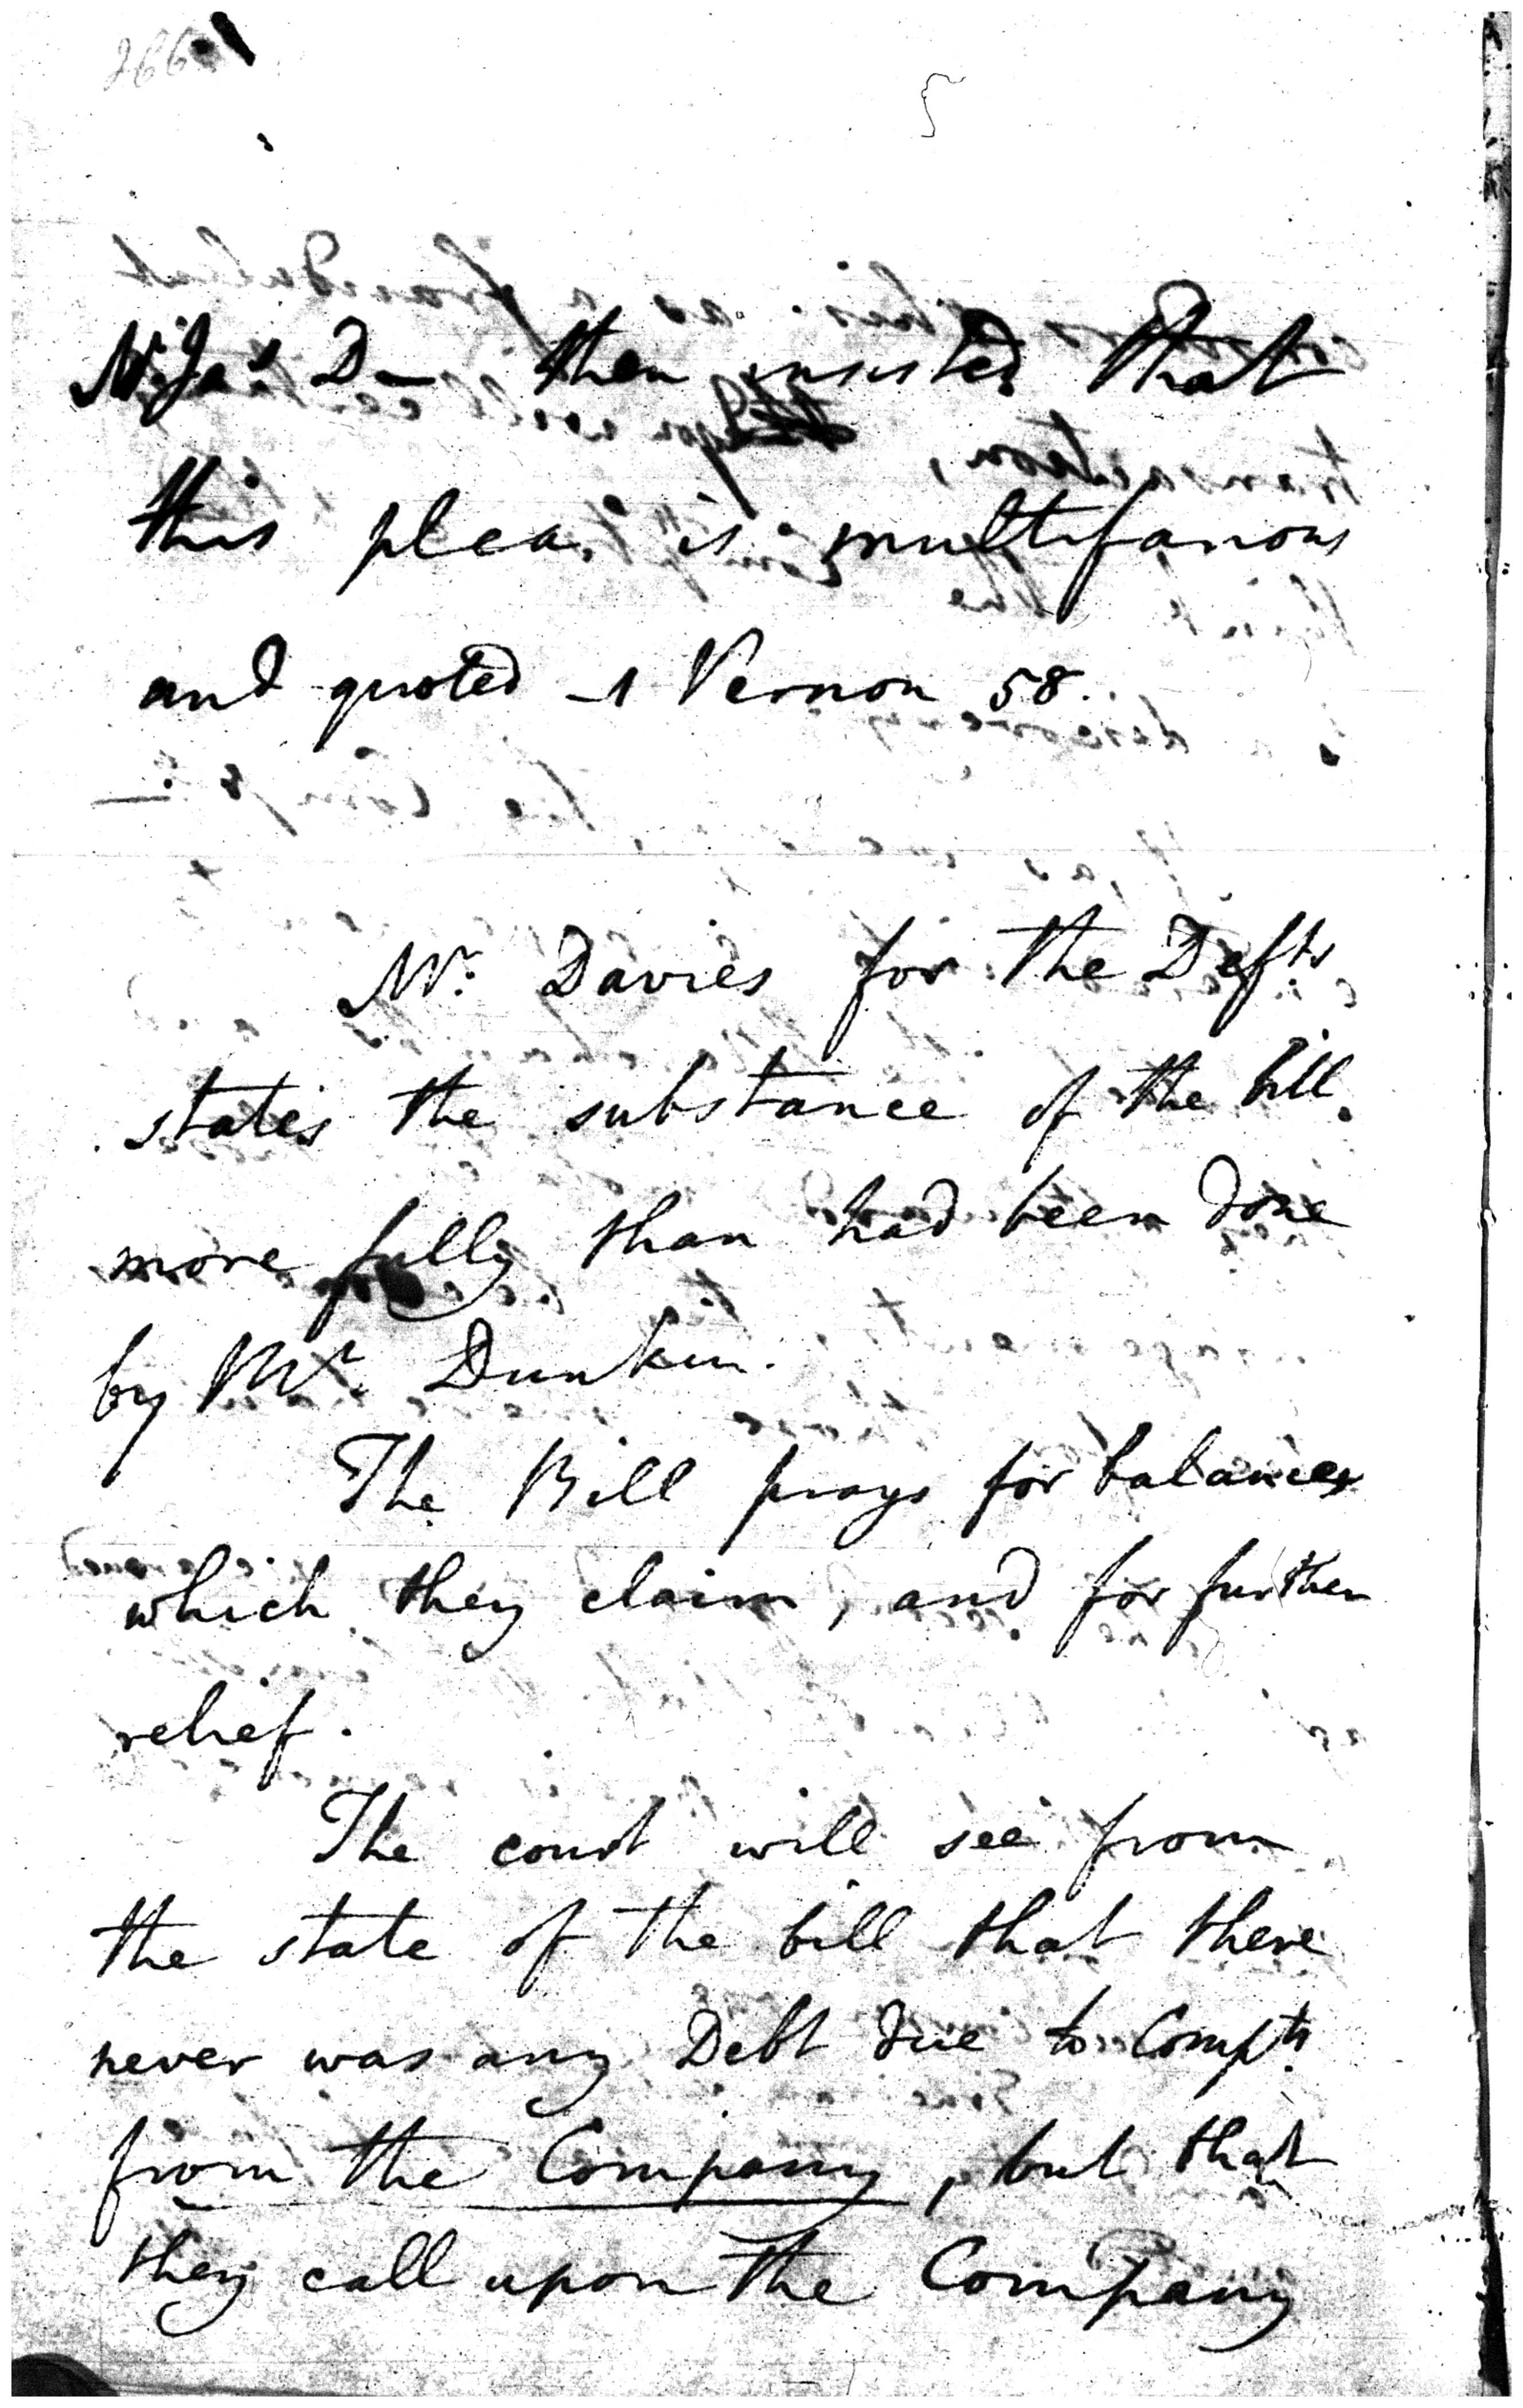 266
5
Mr Jas D— then insisted that
this plea is multifarious
and quoted - 1 Vernon 58.
Mr. Davies for the Defts
states the substance of the bill
more fully than had been done
by Mr. Dunkin.
The Bill prays for balances
which they claim, and for further
relief.
The court will see from
the state of the bill that there
never was any Debt due to Compts
from the Company, but that
they call upon the Company